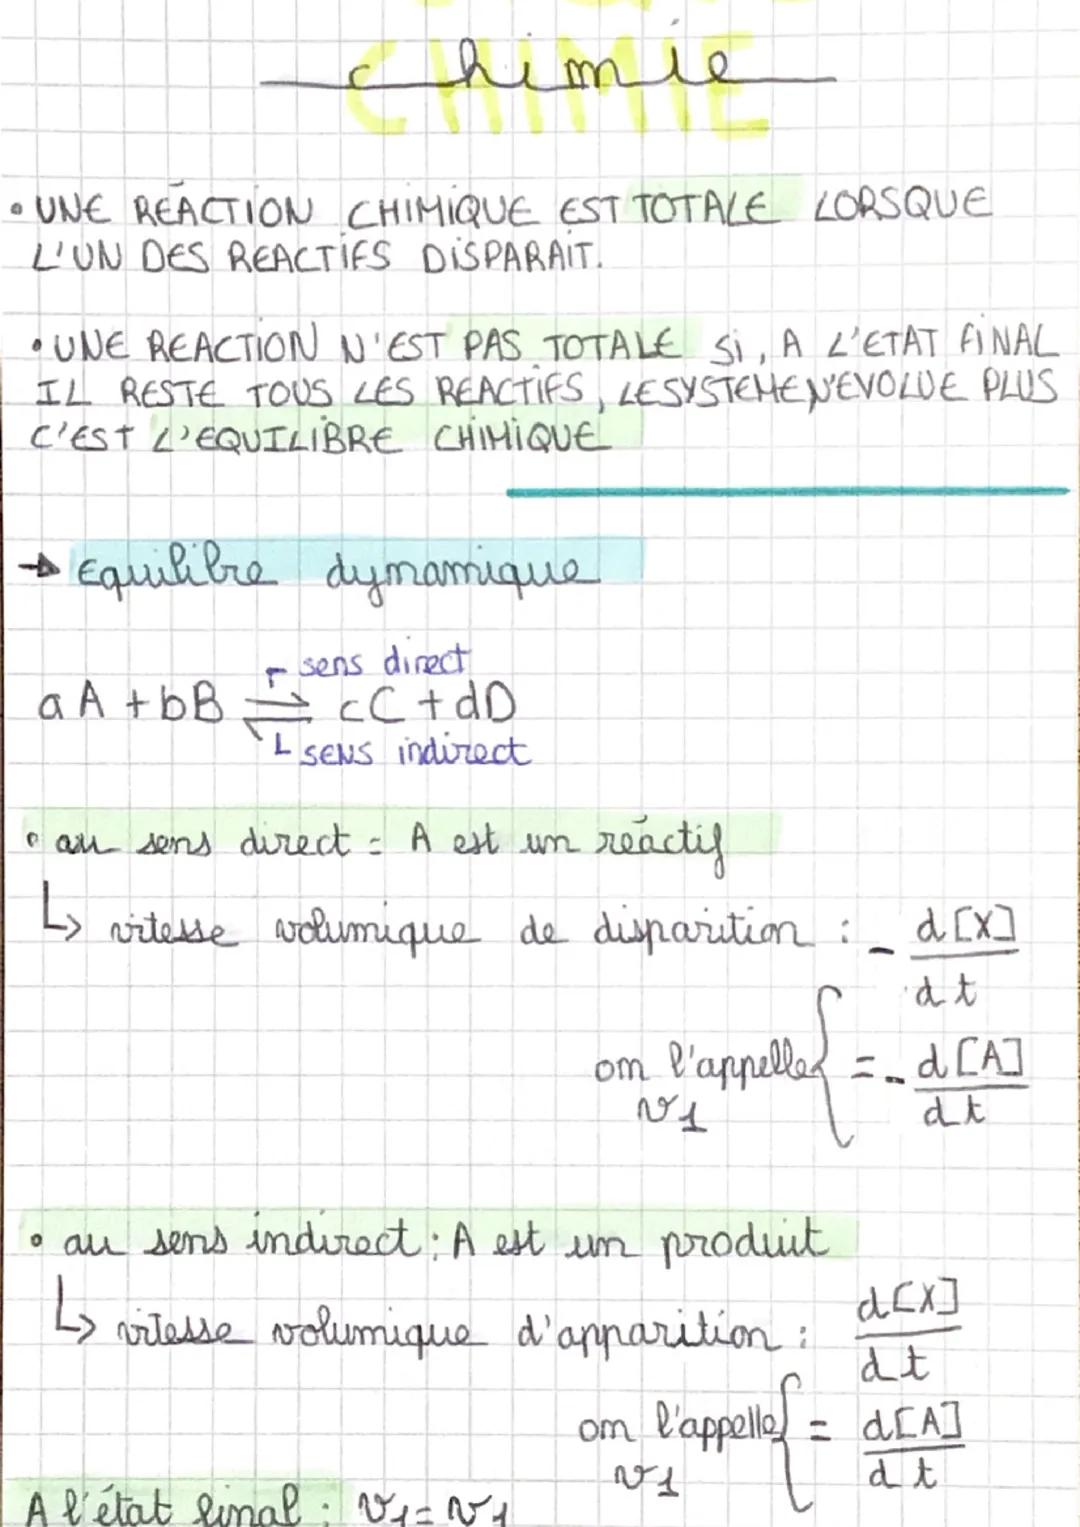 chimie
CHIMIE
• UNE RÉACTION CHIMIQUE EST TOTALE LORSQUE
L'UN DES REACTIFS DISPARAIT.
• UNE REACTION N'EST PAS TOTALE Si, A L'ETAT FINAL
IL RESTE TOUS LES REACTIFS, LE SYSTEME N'EVOLUE PLUS
C'EST L'EQUILIBRE CHIMIQUE
→ Equilibre dynamique
sens direct
aA + bB ⇌ cC + dD
sens indirect
• au sens direct = A est un réactif
↳ vitesse volumique de disparition : - d[X]
dt
on l'appelle { = - d[A]
v1 dt
• au sens indirect : A est un produit
↳ vitesse volumique d'apparition : d[X]
dt
on l'appelle { = d[A]
v1 dt
A l'état final : v1 = v1